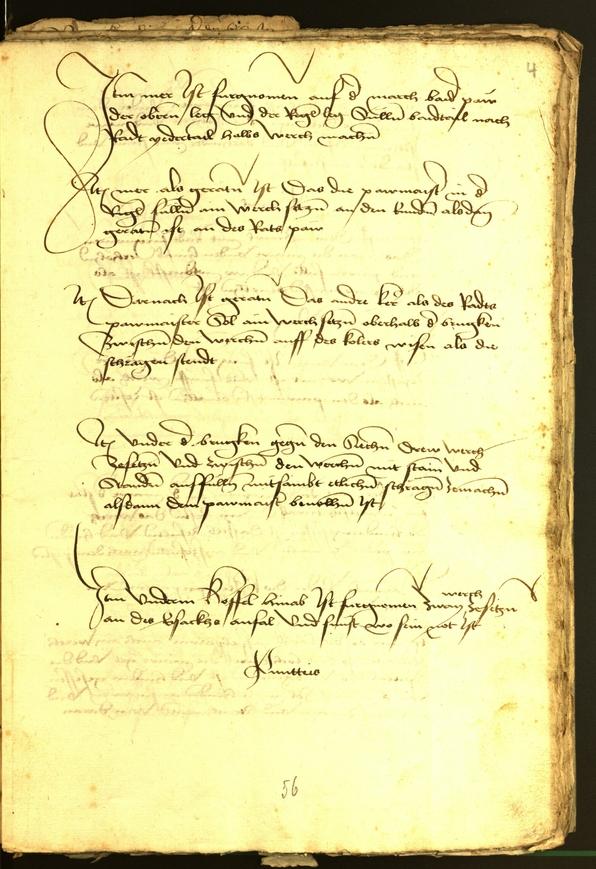 4
Item mer ist furgnomen auf d march baid paw
der obren leg und der Rigl leg Sullen baidtail nach
Radt yedertail halbs werch machn
It mer als geratn ist Das die pawmaist in d
Rigl sullen ain werch setzn an den enndn als dan
geraten ist an des Rats paw
It Darnach ist geratn Das andre ker als des Radts
pawmaister Sol ain werch setzn oberhalb d brugken
Zwischn den werchen auff des kolers wisen als die
schragen stendt
It under d brugken gegn den Siechn Drew werch
Zesetzn und zwischn den werchn mit stain und
Standn auffulln mitsambt etlichn schragn Zemachn
alsdann dem pawmaist bevolhn ist
Item underm Kofel hinab ist furgnomen Zway werch Zesetzn
an des anfal und sunst wo sein not ist
56